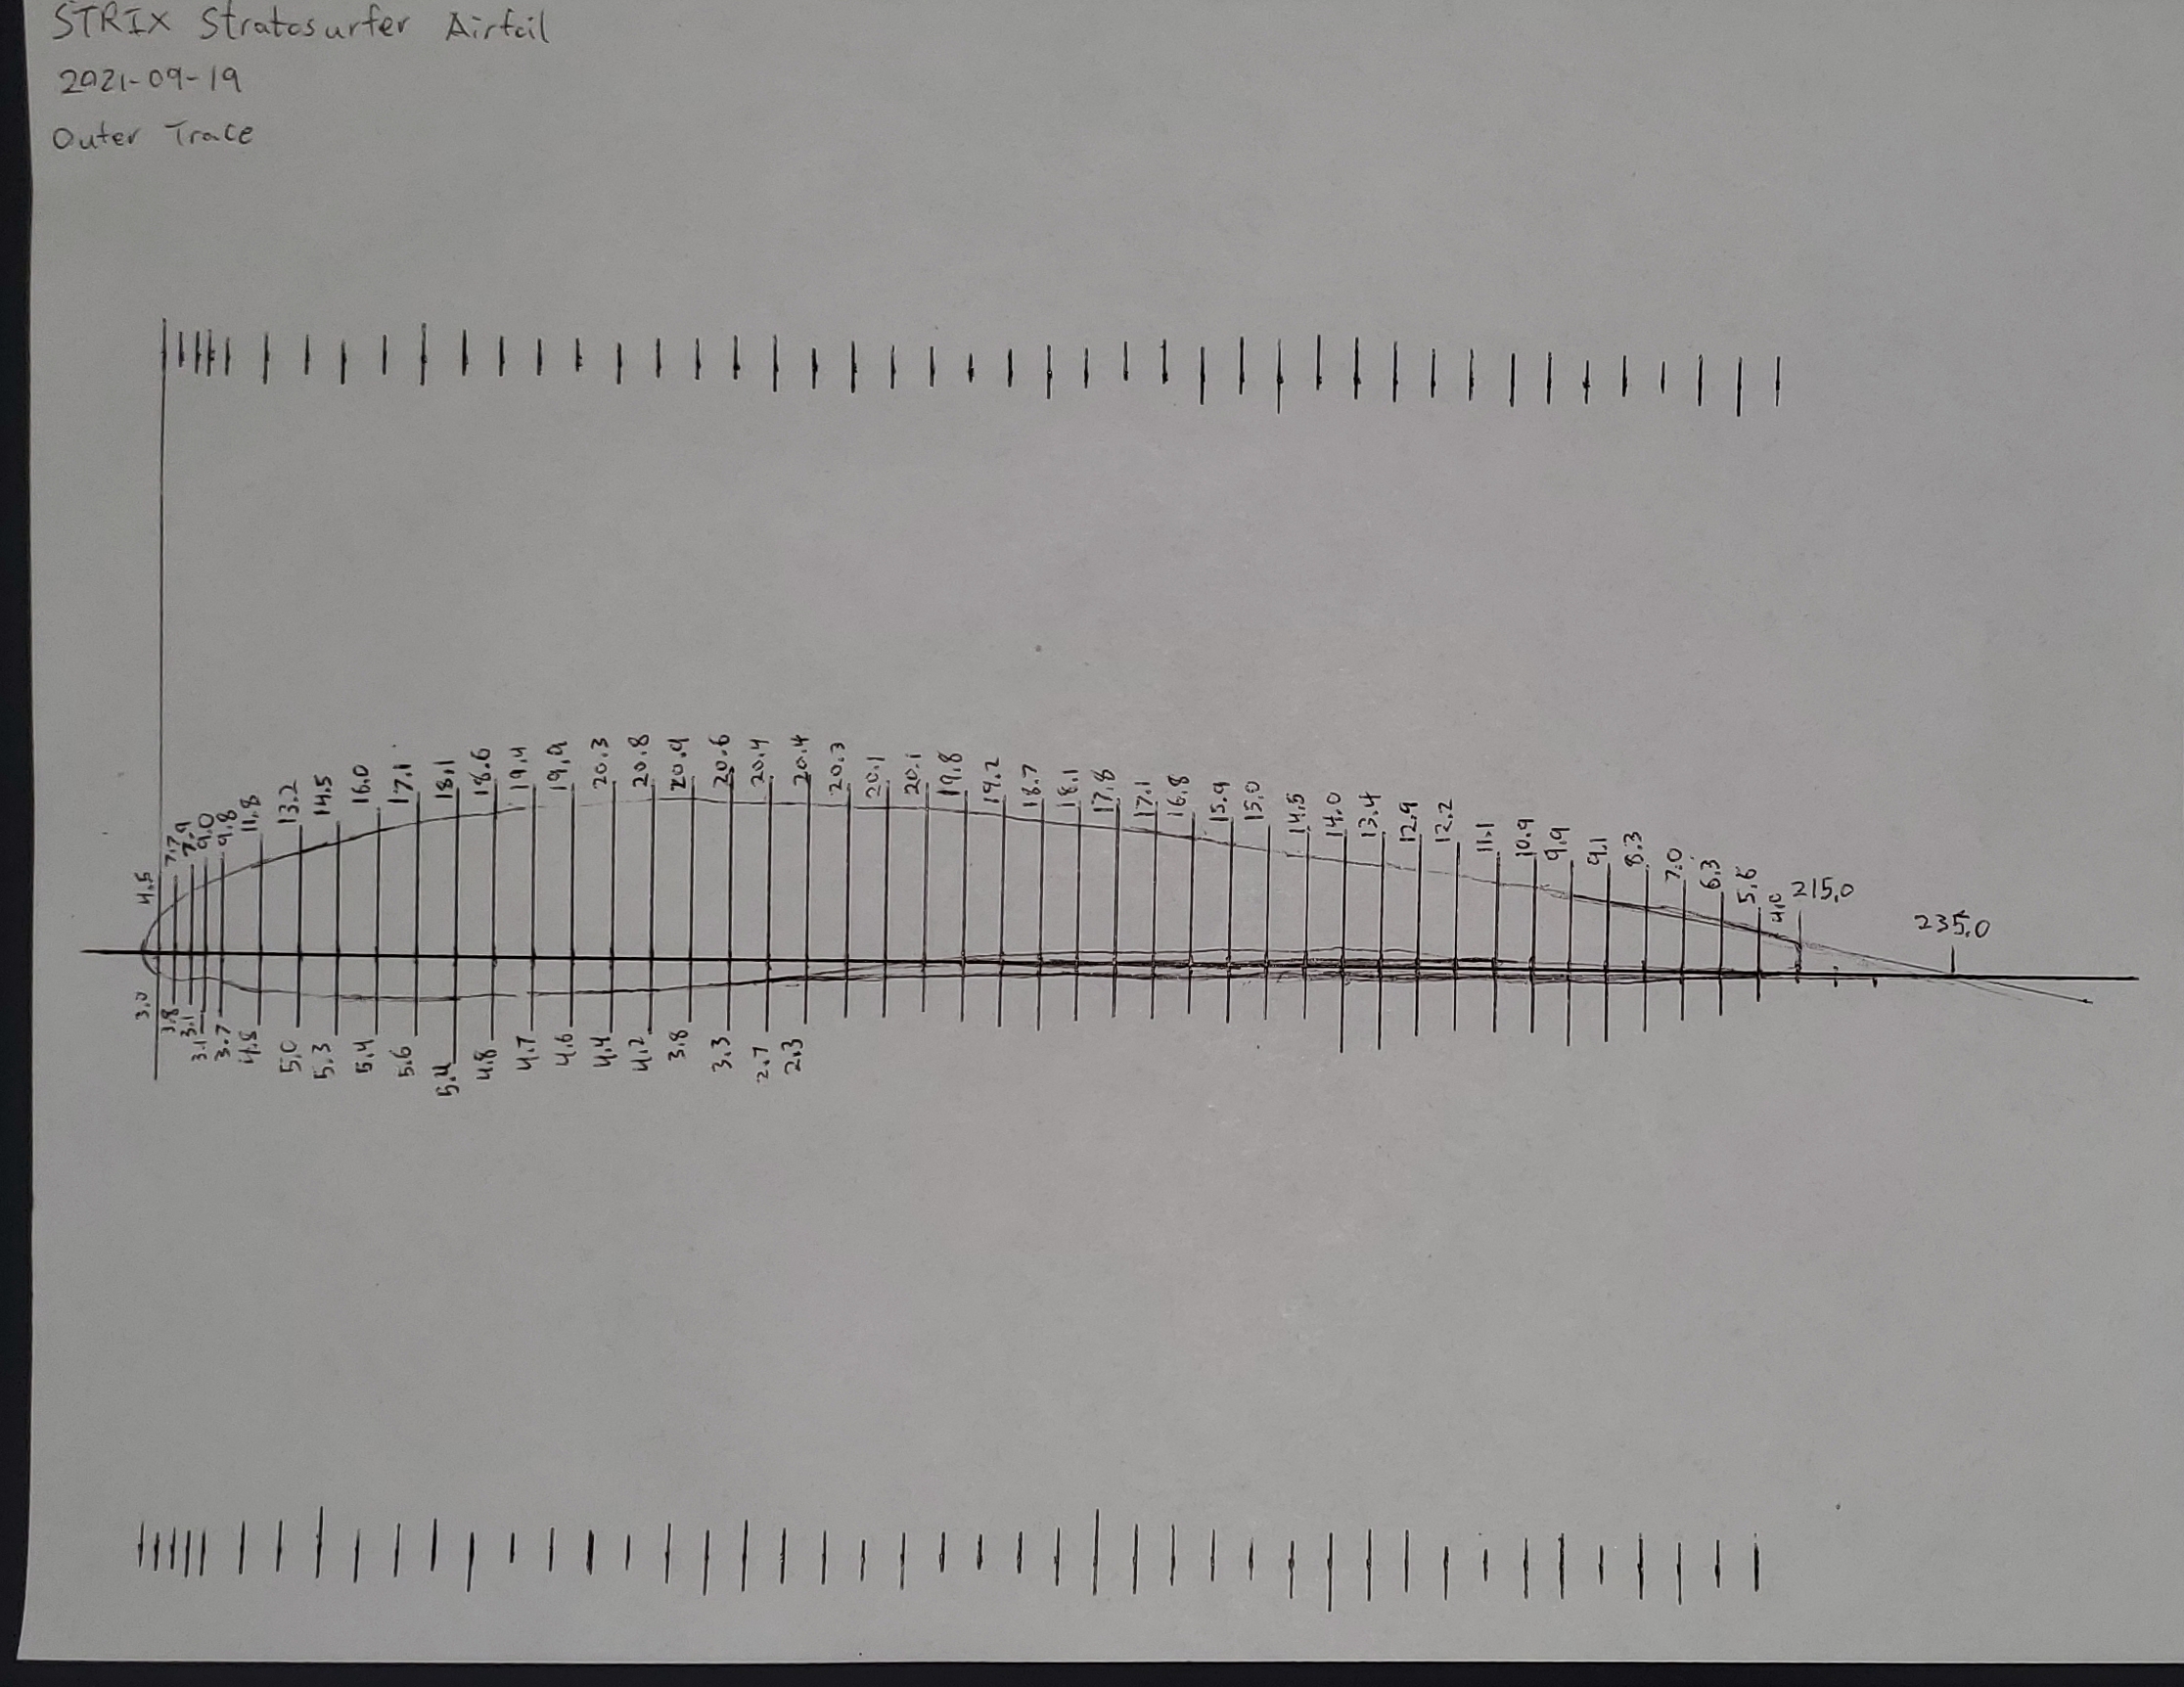 STRIX Stratosurfer Airfoil
2021-09-19
Outer Trace
4.5 7.7 7.9 9.0 9.8 11.8 13.2 14.5 16.0 17.1 18.1 18.6 19.4 19.9 20.3 20.8 20.9 20.6 20.4 20.4 20.3 20.1 20.1 19.8 19.2 18.7 18.1 17.8 17.1 16.8 15.9 15.0 14.5 14.0 13.4 12.9 12.2 11.1 10.9 9.9 9.1 8.3 7.0 6.3 5.6 4.0 215.0 235.0
3.0 3.8 3.1 3.1 3.7 4.8 5.0 5.3 5.4 5.6 5.4 4.8 4.7 4.6 4.4 4.2 3.8 3.3 2.7 2.3